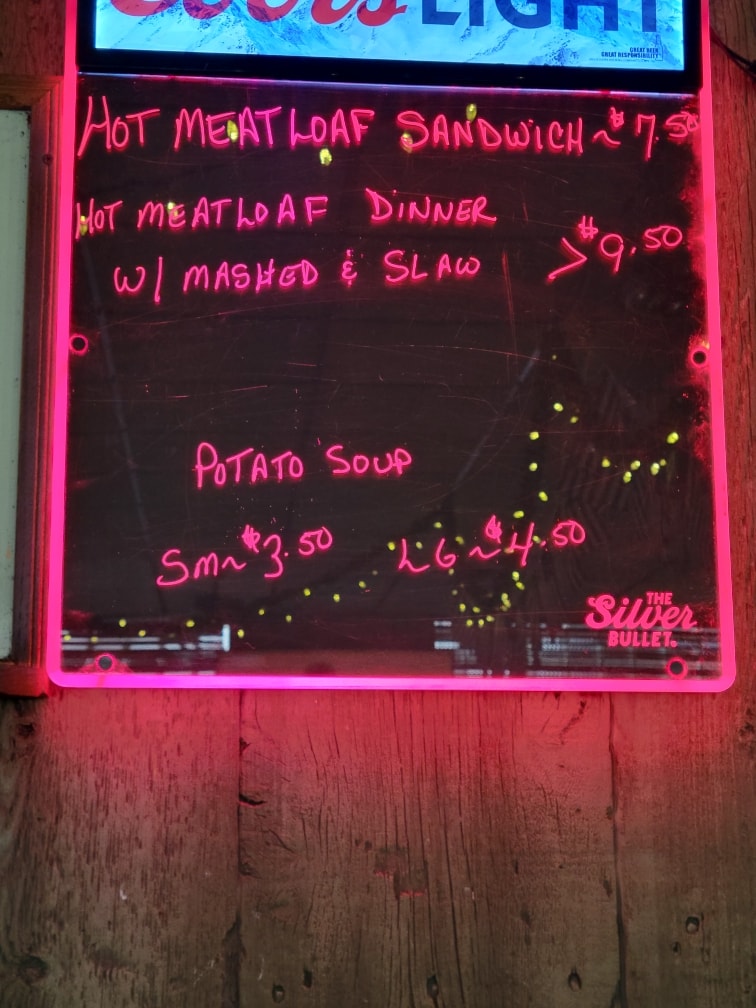 Coors LIGHT
GREAT BEER
GREAT RESPONSIBILITY
HOT MEATLOAF SANDWICH ~ $7.50
HOT MEATLOAF DINNER
W/ MASHED & SLAW > $9.50
POTATO SOUP
Sm~ $3.50 LG ~ $4.50
THE
Silver
BULLET.